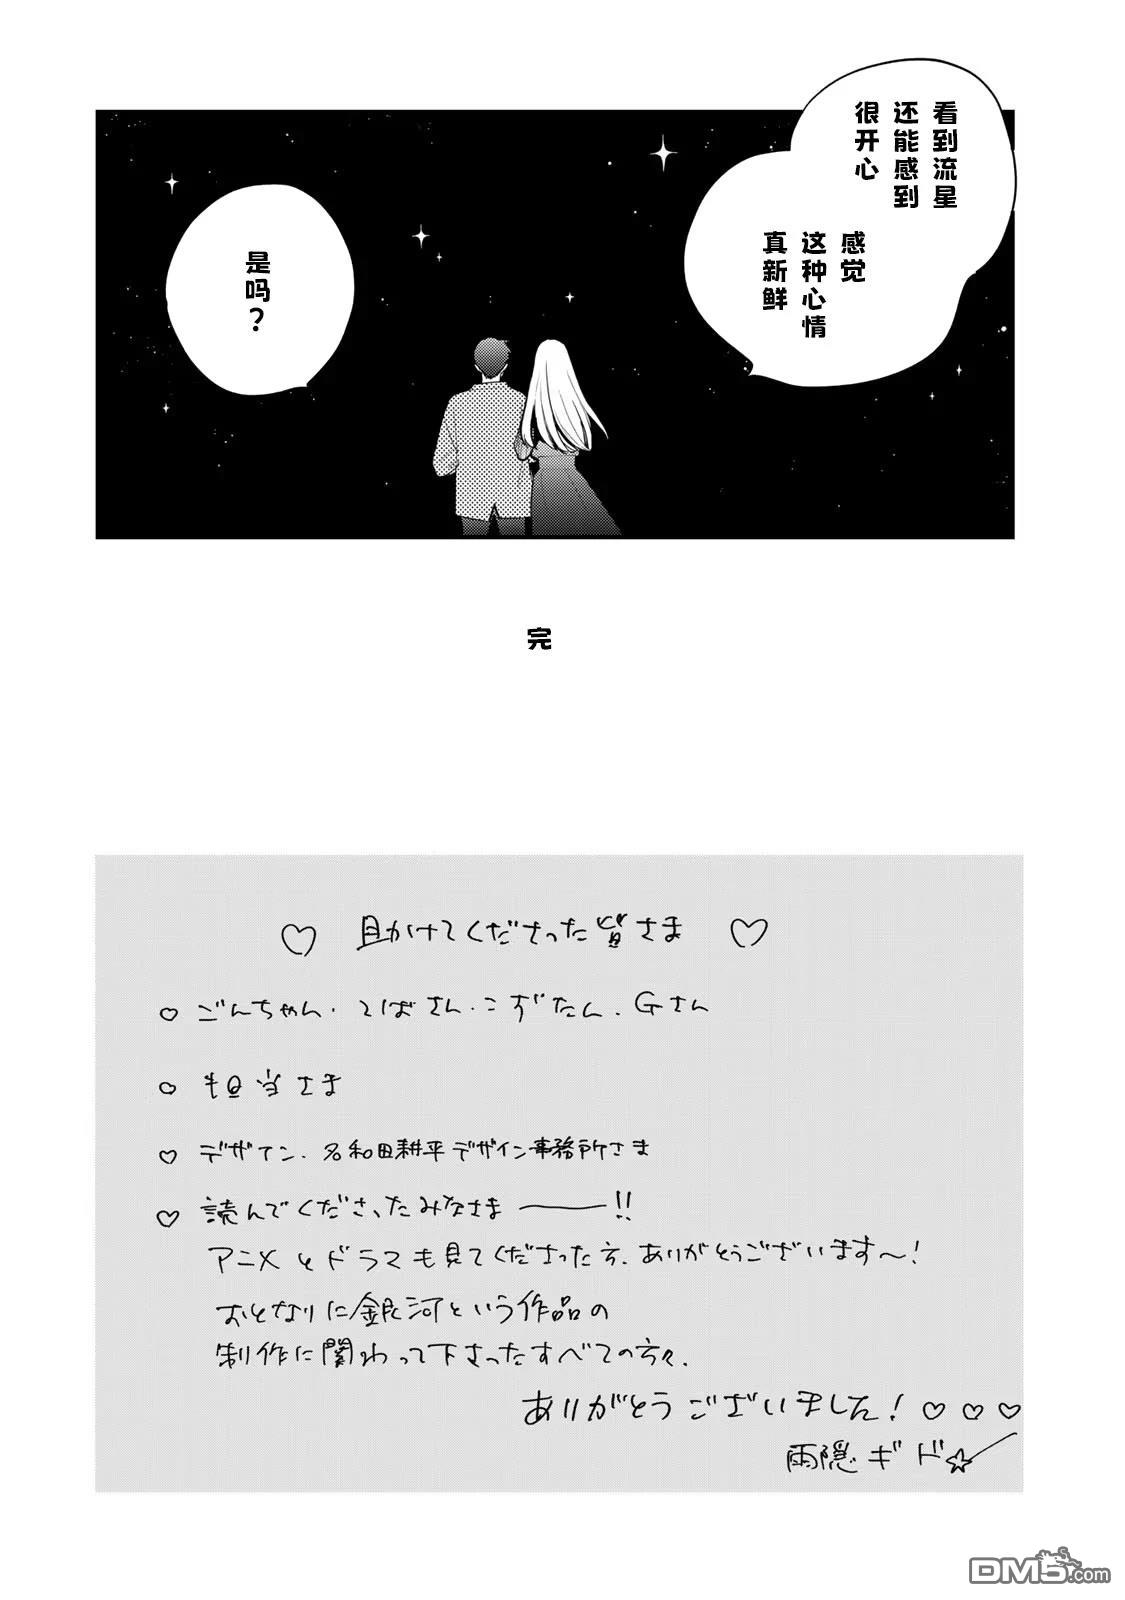 看到流星
还能感到
很开心
感觉
这种心情
真新鲜
是吗？
完
♡ 助かけてくださった皆さま ♡
♡ ごんちゃん・てばさん・こずたん、Gさん
♡ 担当さま
♡ デザイン、名和田耕平デザイン事務所さま
♡ 読んでくださったみなさま———!!
アニメとドラマも見てくださった方、ありがとうございます〜！
おとなりに銀河という作品の
制作に関わって下さったすべての方々、
ありがとうございました！♡♡♡
雨隠ギド☆
DM5.com